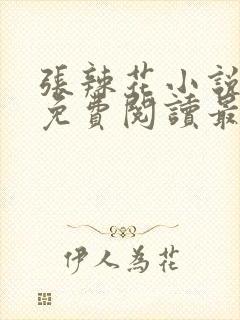 張辣花小說
免費閱讀最
伊人為花